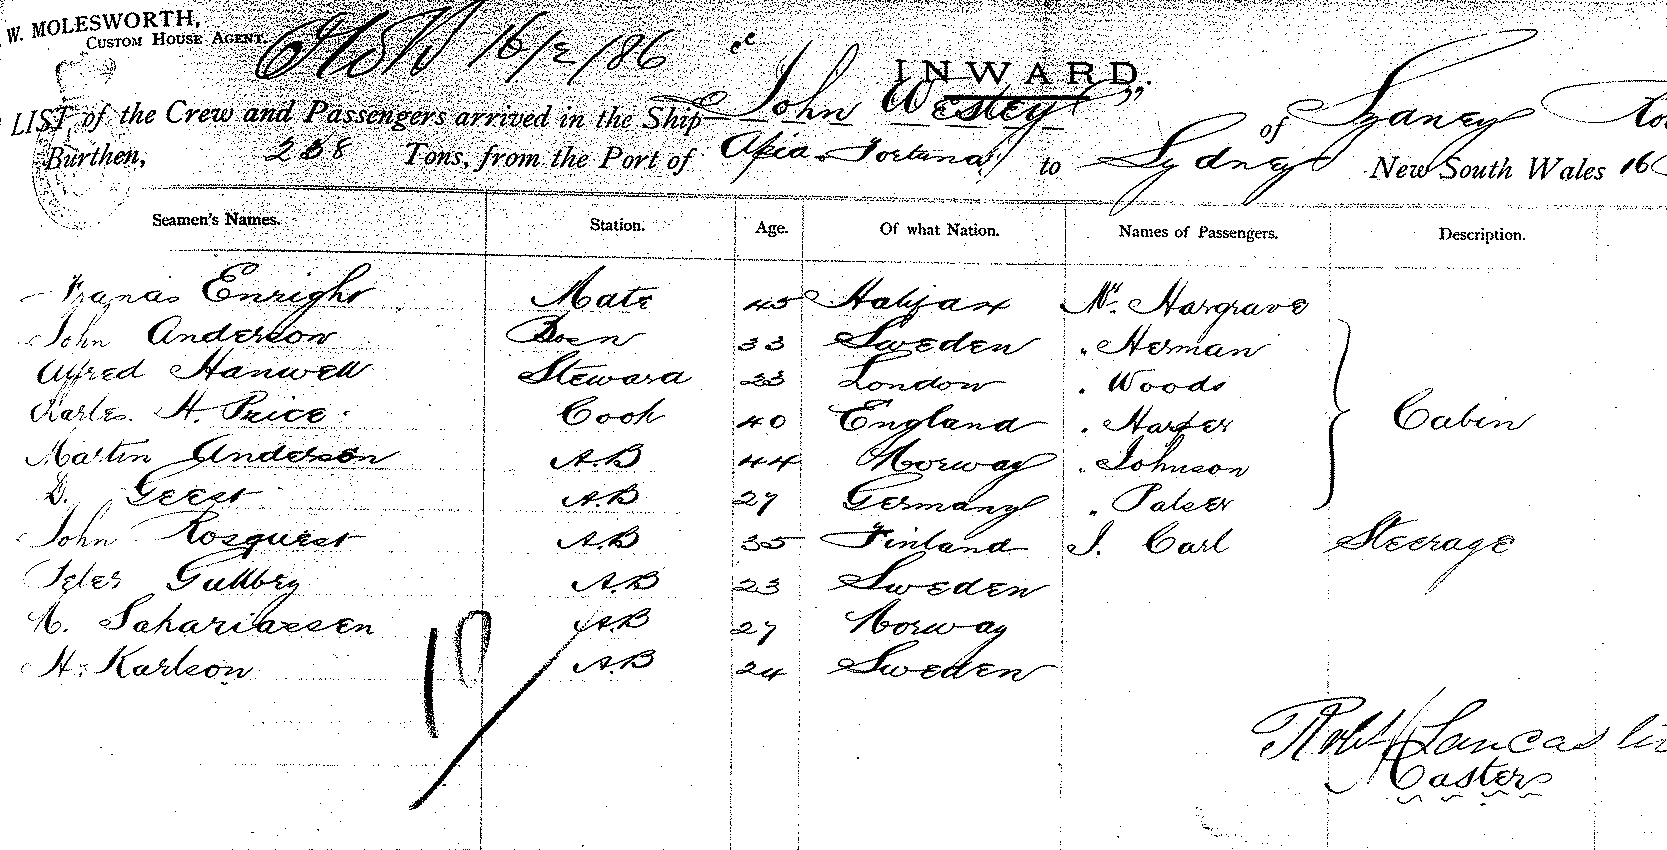 W. MOLESWORTH,
CUSTOM HOUSE AGENT.
16/2/86
INWARD.
LIST of the Crew and Passengers arrived in the Ship "John Wesley" of Sydney
Burthen, 238 Tons, from the Port of Apia to Sydney New South Wales 16
Seamen's Names. Station. Age. Of what Nation. Names of Passengers. Description.
Francis Enright Mate 45 Halifax Mr. Hargrave
John Anderson Bosn 33 Sweden " Herman
Alfred Hanwell Steward 23 London " Woods
Charles H. Price Cook 40 England " Harper Cabin
Martin Anderson A.B 44 Norway " Johnson
D. Geest A.B 27 Germany " Palser
John Rosquest A.B 35 Finland J. Carl Steerage
Peter Gullbry A.B 23 Sweden
M. Sahariaesen A.B 27 Norway
H. Karlson A.B 24 Sweden
10
Robt Lancas
Master